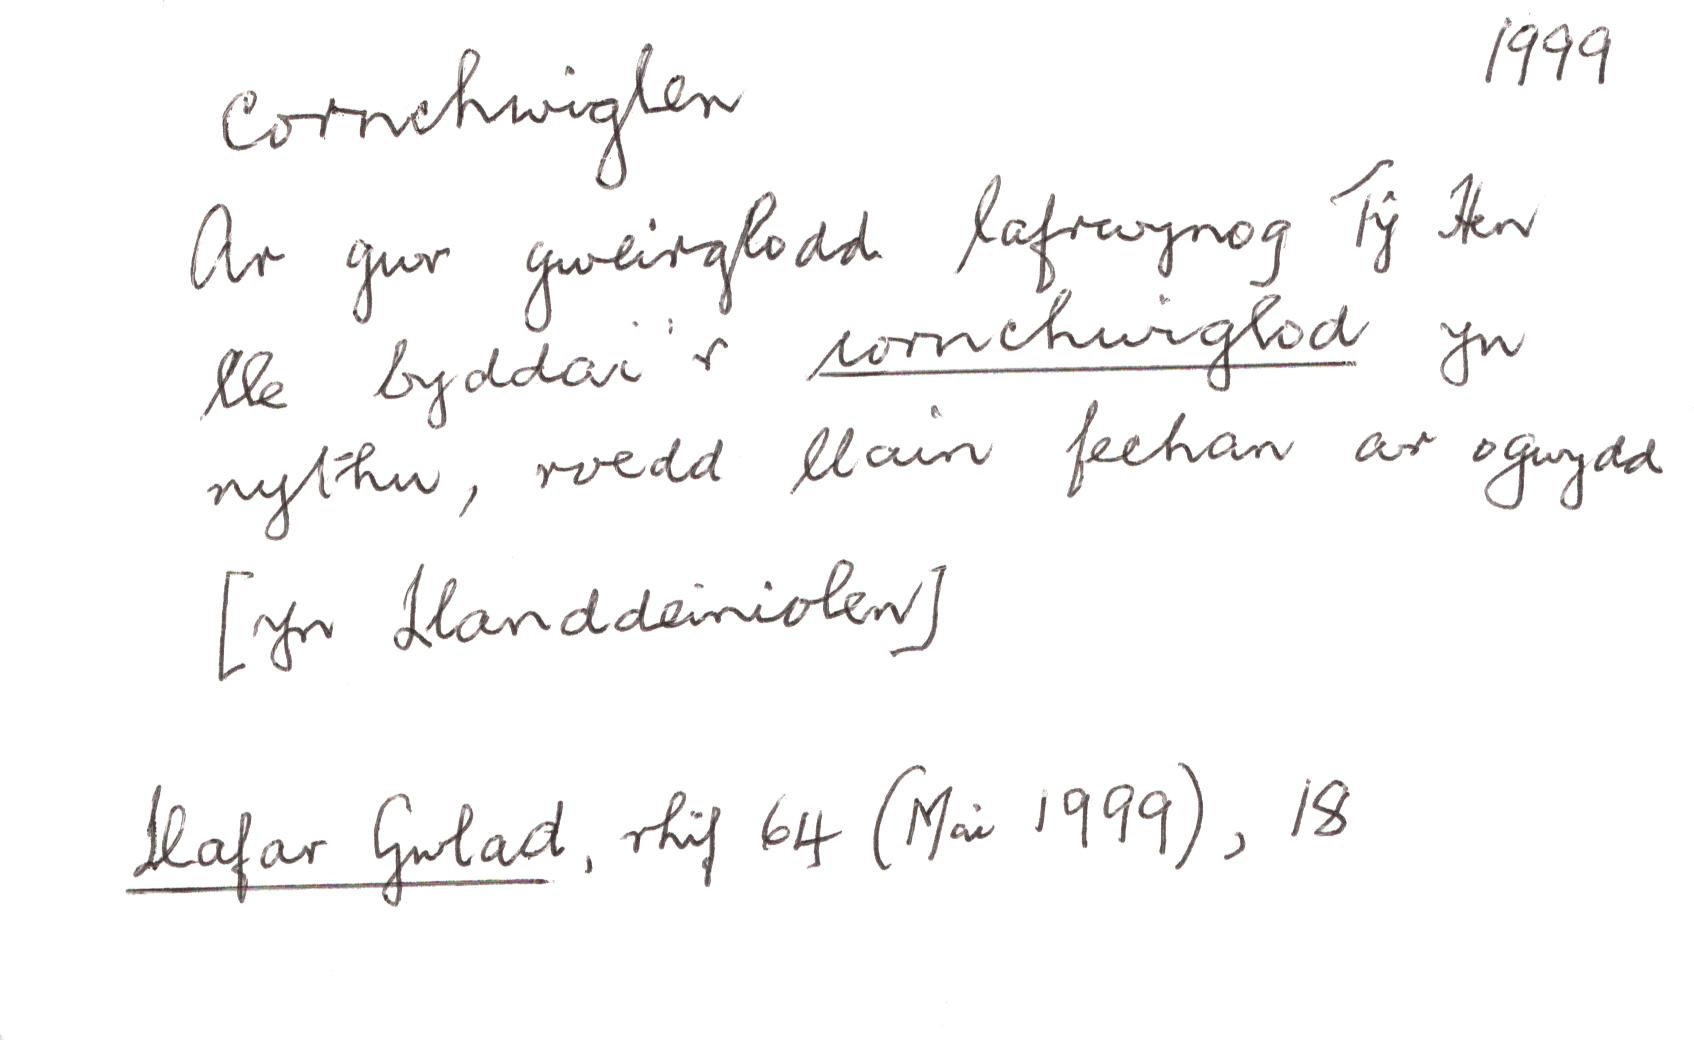 1999
cornchwiglen
Ar gwr gweirglodd lafrwynog Tŷ Hen
lle byddai'r cornchwiglod yn
nythu, roedd llain fechan ar ogwydd
[yn Llanddeiniolen]
Llafar Gwlad, rhif 64 (Mai 1999), 18